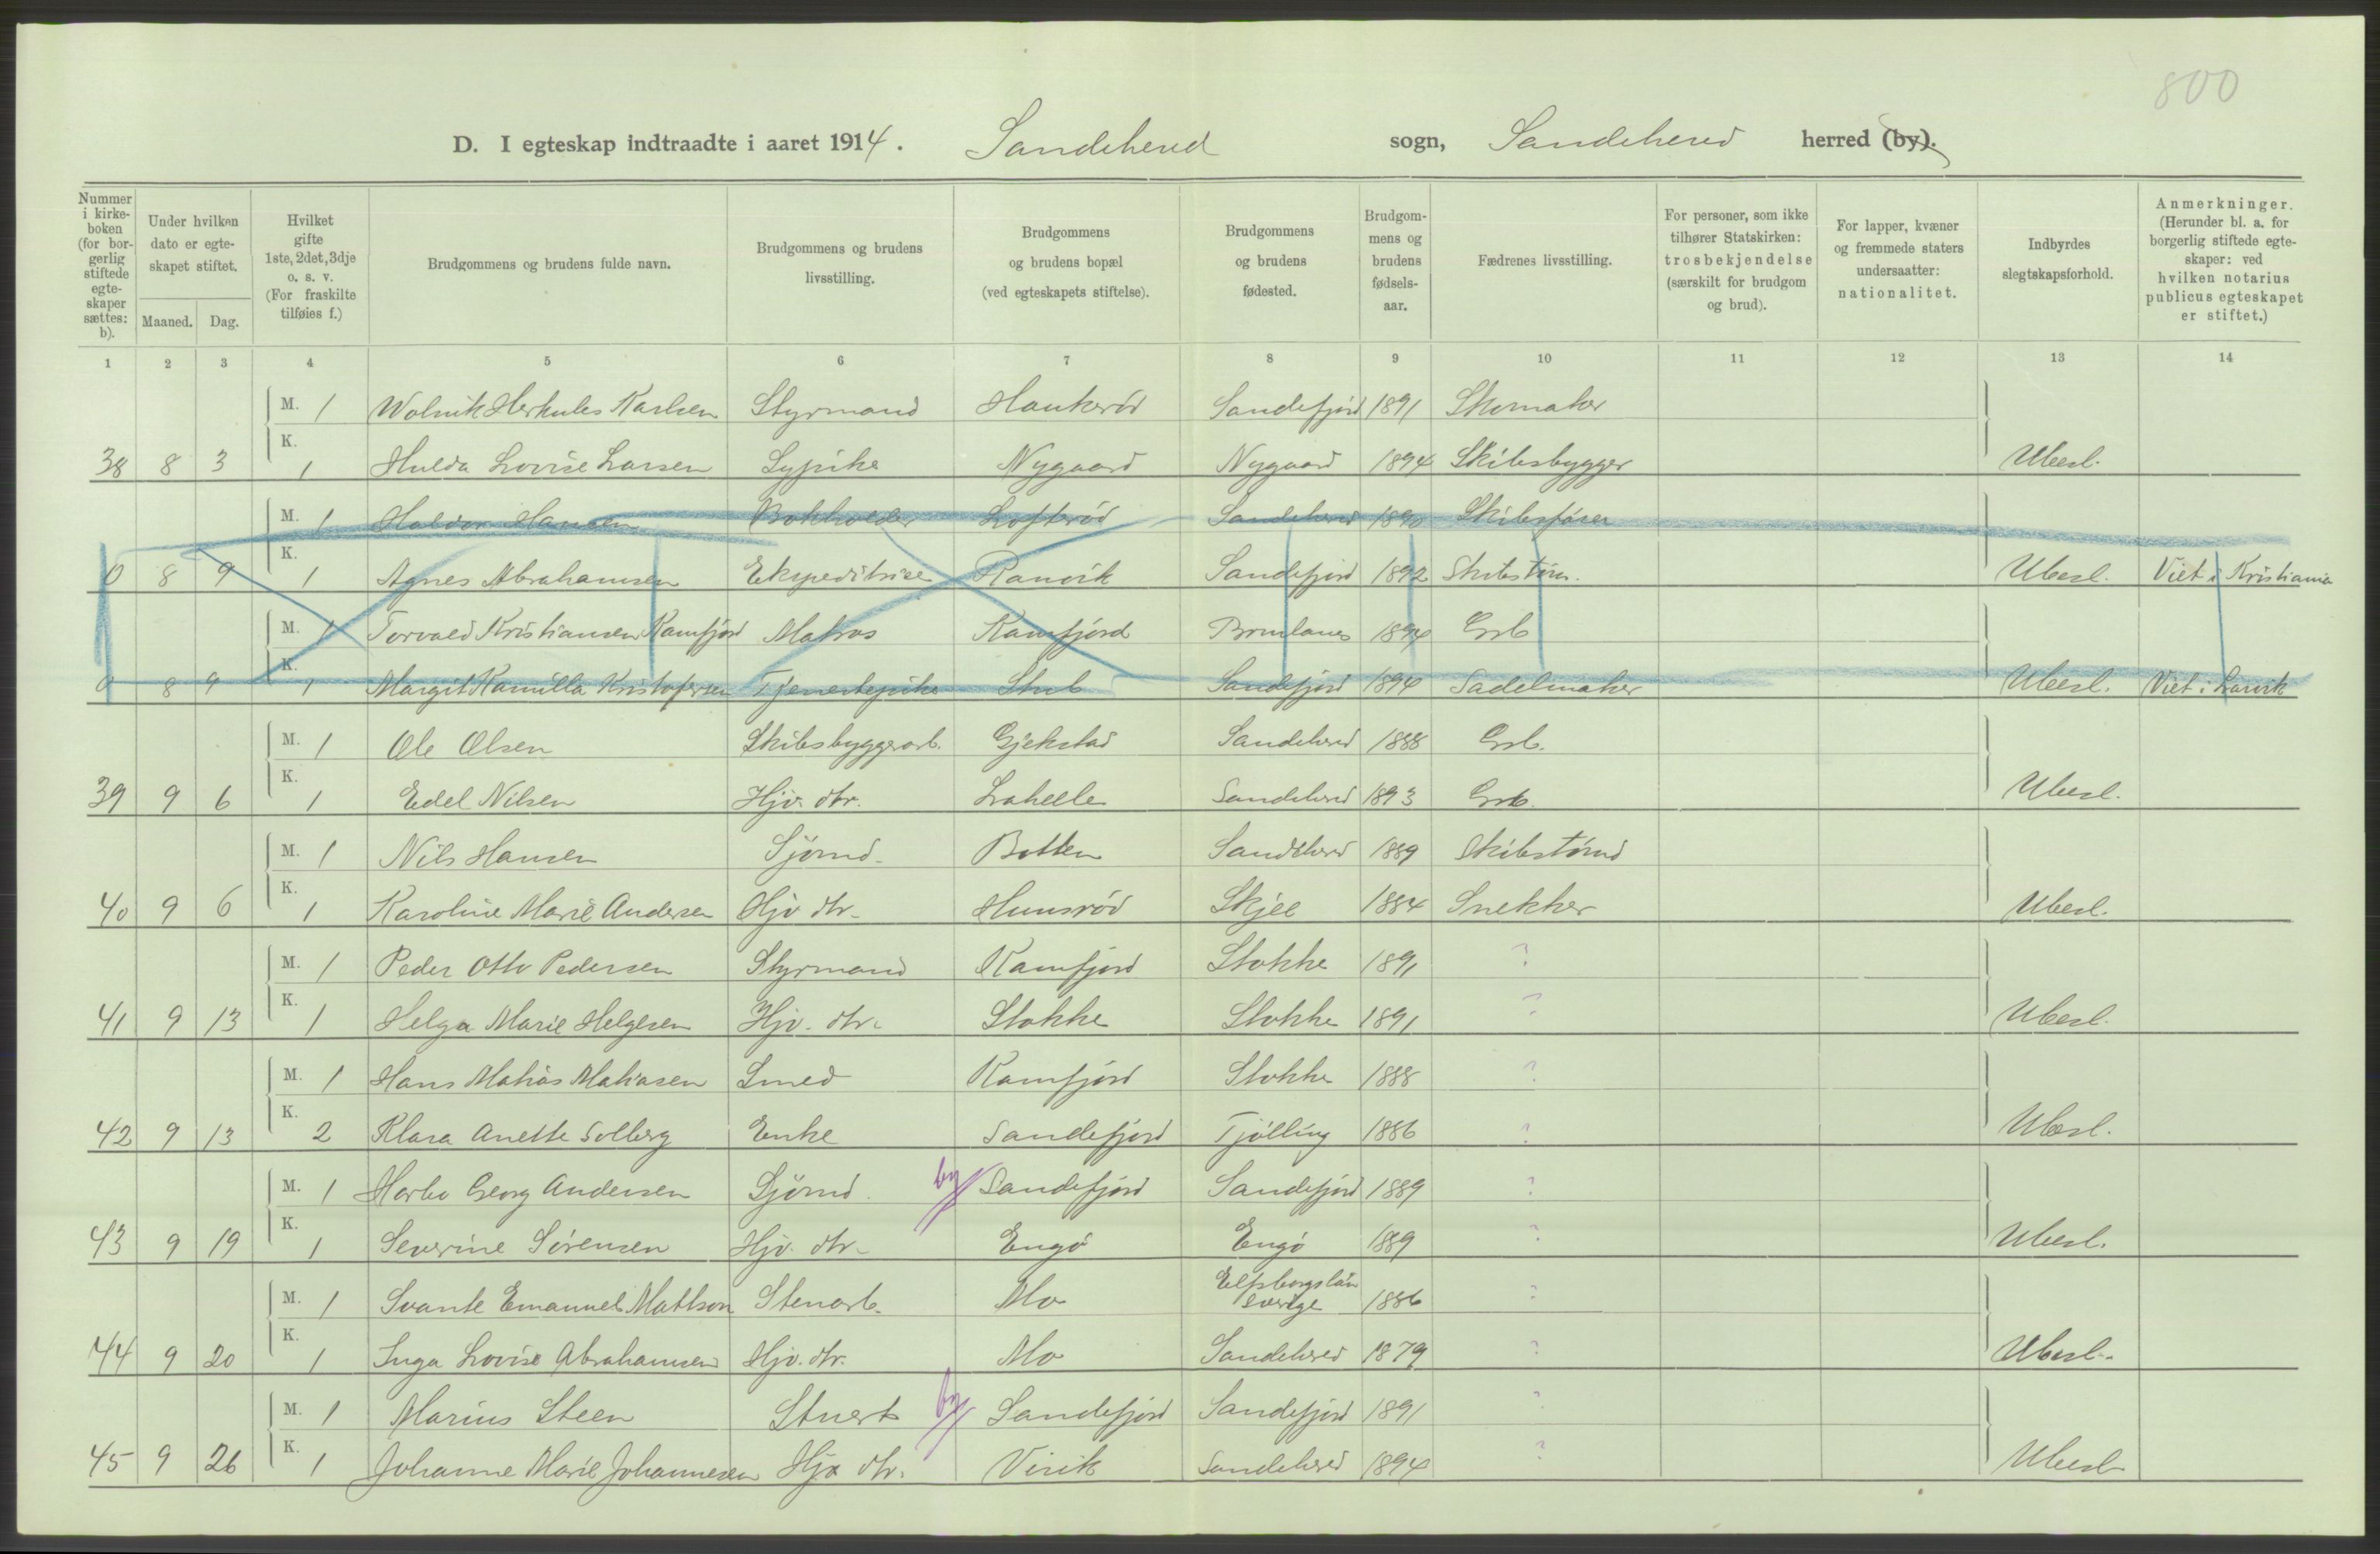 800
D. I egteskap indtraadte i aaret 1914. Sandeherred sogn, Sandeherred herred (by).
Nummer i kirkeboken (for borgerlig stiftede egteskaper sættes: b).
Under hvilken dato er egteskapet stiftet.
Maaned. Dag.
Hvilket gifte 1ste, 2det, 3dje o. s. v. (For fraskilte tilføies f.)
Brudgommens og brudens fulde navn.
Brudgommens og brudens livsstilling.
Brudgommens og brudens bopæl (ved egteskapets stiftelse).
Brudgommens og brudens fødested.
Brudgommens og brudens fødselsaar.
Fædrenes livsstilling.
For personer, som ikke tilhører Statskirken: trosbekjendelse (særskilt for brudgom og brud).
For lapper, kvæner og fremmede staters undersaatter: nationalitet.
Indbyrdes slegtskapsforhold.
Anmerkninger. (Herunder bl. a. for borgerlig stiftede egteskaper: ved hvilken notarius publicus egteskapet er stiftet.)
1 2 3 4 5 6 7 8 9 10 11 12 13 14
M. 1 Herkules Karlsen Styrmand Haukerød Sandefjord 1891 Skomaker
38 8 3 K. 1 Hulda Lovise Larsen Sypike Nygaard Nygaard 1894 Skibsbygger Ubesl.
M. 1 Halvor Hansen Bokholder Lofterød Sandeherred 1890 Skibsfører
0 8 9 K. 1 Agnes Abrahamsen Ekspeditrise Ranvik Sandefjord 1892 Skibstøm. Ubesl. Viet i Kristiania
M. 1 Torvald Kristiansen Kamfjord Matros Kamfjord Brunlanes 1894 Grb
0 8 9 K. 1 Margit Kamilla Kristofersen Tjenestepike Stub Sandefjord 1894 Sadelmaker Ubesl. Viet i Larvik
M. 1 Ole Olsen Skibsbyggerarb. Gjekstad Sandeherred 1888 Grb.
39 9 6 K. 1 Edel Nilsen Hjv. dtr. Lahelle Sandeherred 1893 Grb. Ubesl.
M. 1 Nils Hansen Sjømd. Botten Sandeherred 1889 Skibstømd
40 9 6 K. 1 Karoline Marie Andersen Hjv dtr. Hunsrød Skjee 1884 Snekker Ubesl.
M. 1 Peder Otto Pedersen Styrmand Kamfjord Stokke 1891 ?
41 9 13 K. 1 Helga Marie Helgesen Hjv. dtr. Stokke Stokke 1891 ? Ubesl.
M. 1 Hans Matias Matiasen Smed Kamfjord Stokke 1888 ?
42 9 13 K. 2 Klara Anette Solberg Enke Sandefjord Tjølling 1886 ? Ubesl.
M. 1 Georg Andersen Sjømd. by Sandefjord Sandefjord 1889 ?
43 9 19 K. 1 Severine Sørensen Hjv. dtr. Engø Engø 1889 ? Ubesl.
M. 1 Svante Emanuel Mattson Stenarb. Mo Elfsborgslän Sverige 1886 ?
44 9 20 K. 1 Inga Lovise Abrahamsen Hjv. dtr. Mo Sandeherred 1879 ? Ubesl.
M. 1 Marius Steen Stuert by Sandefjord Sandefjord 1891 ?
45 9 26 K. 1 Johanne Marie Johannesen Hjv dtr. Virik Sandeherred 1894 ? Ubesl.